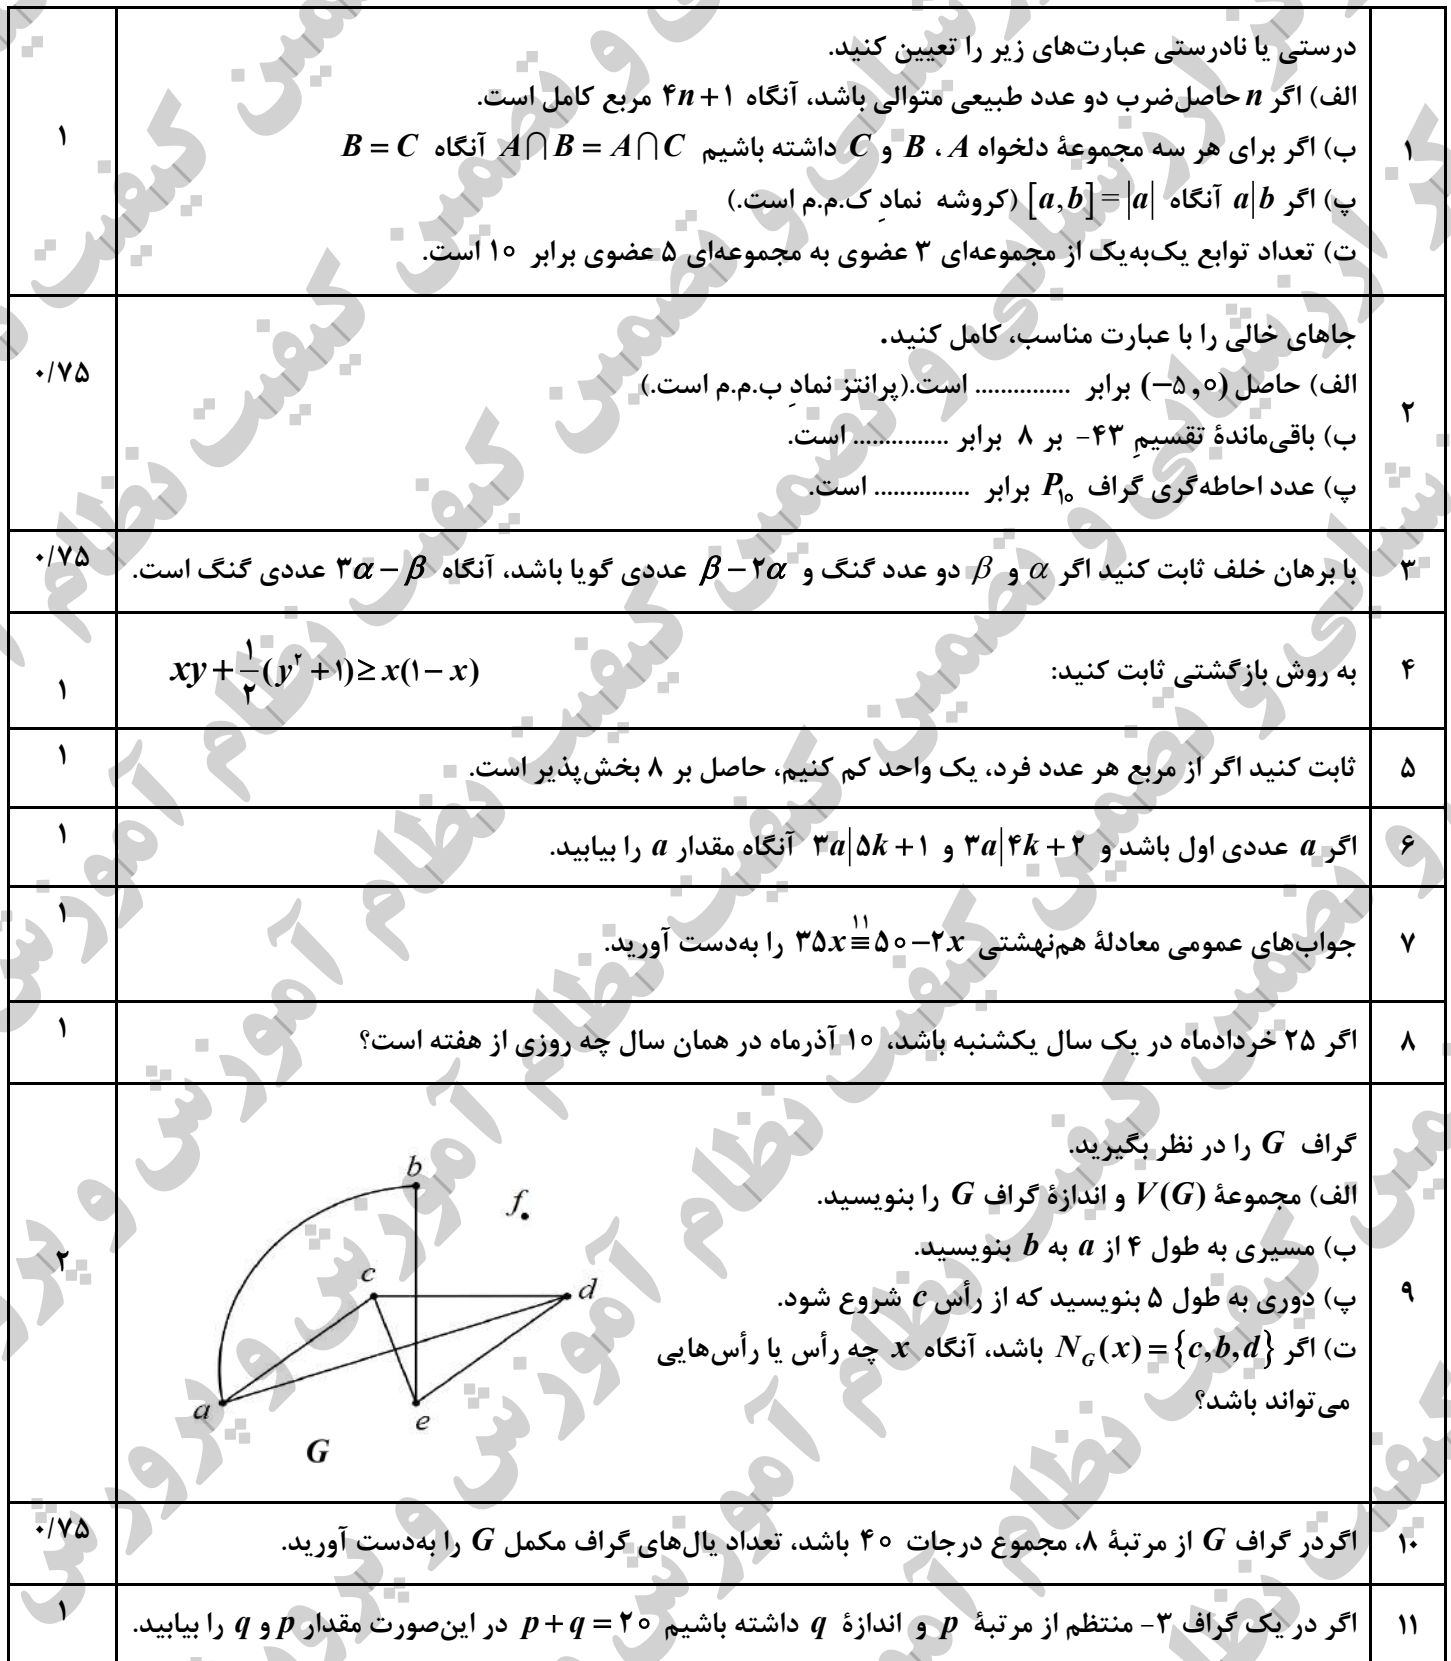 ۱
درستی یا نادرستی عبارت‌های زیر را تعیین کنید.
الف) اگر n حاصل‌ضرب دو عدد طبیعی متوالی باشد، آنگاه ۴n+۱ مربع کامل است.
ب) اگر برای هر سه مجموعهٔ دلخواه A ، B و C داشته باشیم A∩B = A∩C آنگاه B = C
پ) اگر a|b آنگاه [a,b]=|a| (کروشه نمادِ ک.م.م است.)
ت) تعداد توابع یک‌به‌یک از مجموعه‌ای ۳ عضوی به مجموعه‌ای ۵ عضوی برابر ۱۰ است.
۱
۲
جاهای خالی را با عبارت مناسب، کامل کنید.
الف) حاصل (−۵,۰) برابر ............... است.(پرانتز نمادِ ب.م.م است.)
ب) باقی‌ماندهٔ تقسیمِ ۴۳- بر ۸ برابر ............... است.
پ) عدد احاطه‌گری گراف P۱۰ برابر ............... است.
۰/۷۵
۳
با برهان خلف ثابت کنید اگر α و β دو عدد گنگ و β−۲α عددی گویا باشد، آنگاه ۳α−β عددی گنگ است.
۰/۷۵
۴
به روش بازگشتی ثابت کنید: xy+۱/۲(y²+۱)≥x(۱−x)
۱
۵
ثابت کنید اگر از مربع هر عدد فرد، یک واحد کم کنیم، حاصل بر ۸ بخش‌پذیر است.
۱
۶
اگر a عددی اول باشد و ۳a|۴k+۲ و ۳a|۵k+۱ آنگاه مقدار a را بیابید.
۱
۷
جواب‌های عمومی معادلهٔ هم‌نهشتی ۳۵x ≡¹¹ ۵۰−۲x را به‌دست آورید.
۱
۸
اگر ۲۵ خردادماه در یک سال یکشنبه باشد، ۱۰ آذرماه در همان سال چه روزی از هفته است؟
۱
۹
گراف G را در نظر بگیرید.
الف) مجموعهٔ V(G) و اندازهٔ گراف G را بنویسید.
ب) مسیری به طول ۴ از a به b بنویسید.
پ) دوری به طول ۵ بنویسید که از رأس c شروع شود.
ت) اگر N_G(x)={c,b,d} باشد، آنگاه x چه رأس یا رأس‌هایی
می‌تواند باشد؟
b
f
c
d
a
e
G
۲
۱۰
اگردر گراف G از مرتبهٔ ۸، مجموع درجات ۴۰ باشد، تعداد یال‌های گراف مکمل G را به‌دست آورید.
۰/۷۵
۱۱
اگر در یک گراف ۳- منتظم از مرتبهٔ p و اندازهٔ q داشته باشیم p+q=۲۰ در این‌صورت مقدار p و q را بیابید.
۱
مرکز ارزشیابی و تضمین کیفیت نظام آموزش و پرورش